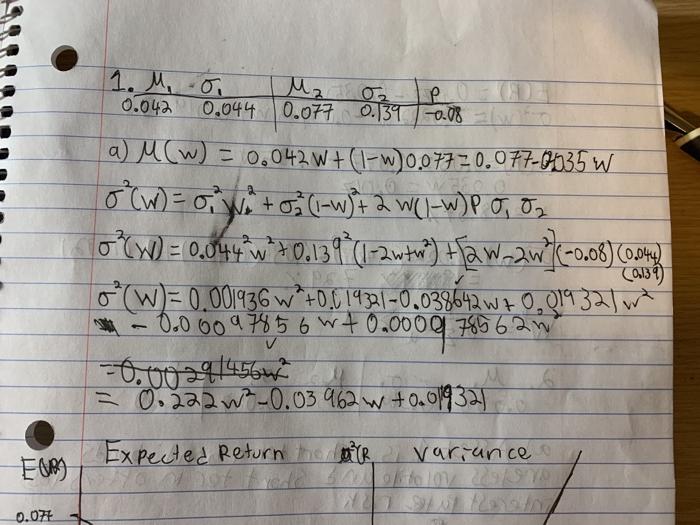 1. M₁ σ₁ M₂ σ₂ P
0.042 0.044 0.077 0.139 -0.08
a) M(w) = 0.042w+(1-w)0.077=0.077-0.035w
σ²(w)=σ₁²w²+σ₂²(1-w)²+2w(1-w)P σ₁ σ₂
σ²(w)=0.044²w²+0.139²(1-2w+w²)+[2w-2w²](-0.08)(0.044)
(0.139)
σ²(w)=0.001936w²+0.019321-0.038642w+0.019321w²
-0.00097856w+0.000978562w²
=0.00291456w²
= 0.222w²-0.03962w+0.019321
Expected Return σ²(R variance
E(R)
0.077